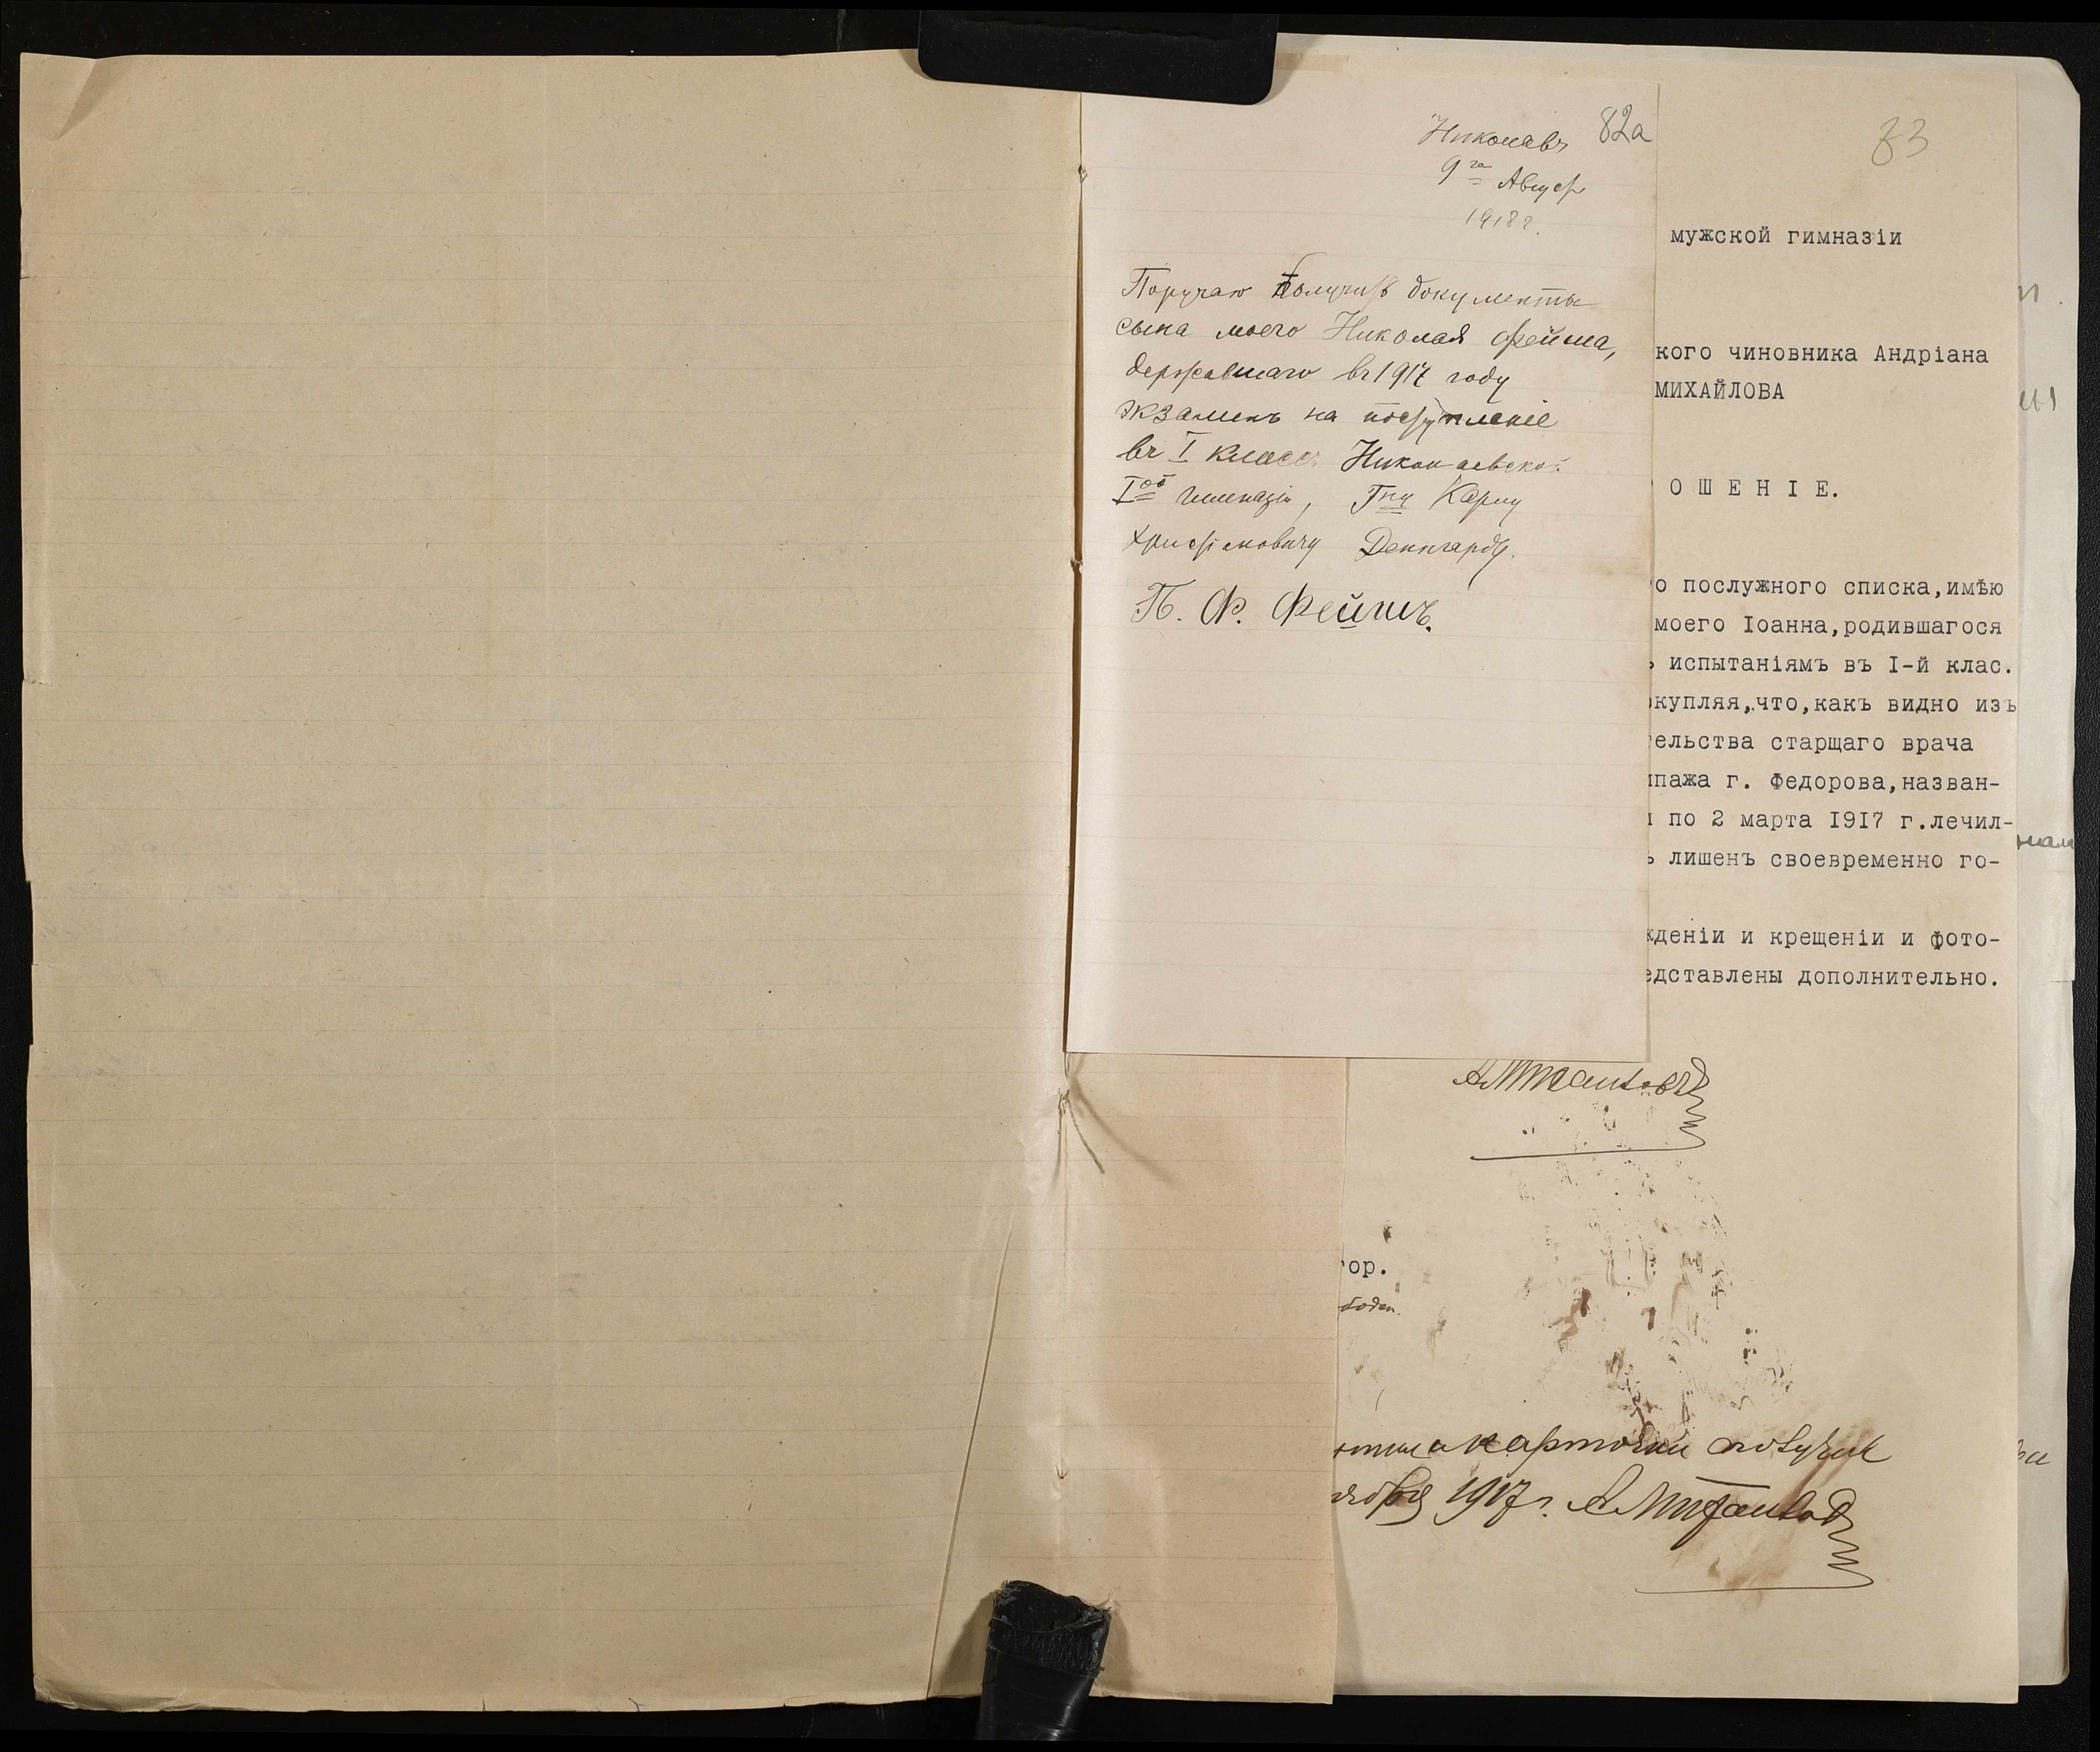 82а
Николаевъ
9го Август
1918 г.
Поручаю получить документы
сына моего Николая Фейша,
державшаго въ 1917 году
экзаменъ на поступленіе
въ I классъ Николаевской
Iой гимназіи, Гну Карлу
Христіановичу Деннгардт.
П. Ф. Фейшъ.
83
мужской гимназіи
кого чиновника Андріана
МИХАЙЛОВА
ОШЕНІЕ.
о послужного списка,имѣю
моего Іоанна,родившагося
ъ испытаніямъ въ I-й клас.
окупляя,что,какъ видно изъ
тельства старщаго врача
ипажа г. Федорова,назван-
и по 2 марта 1917 г.лечил-
ъ лишенъ своевременно го-
жденіи и крещеніи и фото-
едставлены дополнительно.
ор.
карточки получил
1917 г.